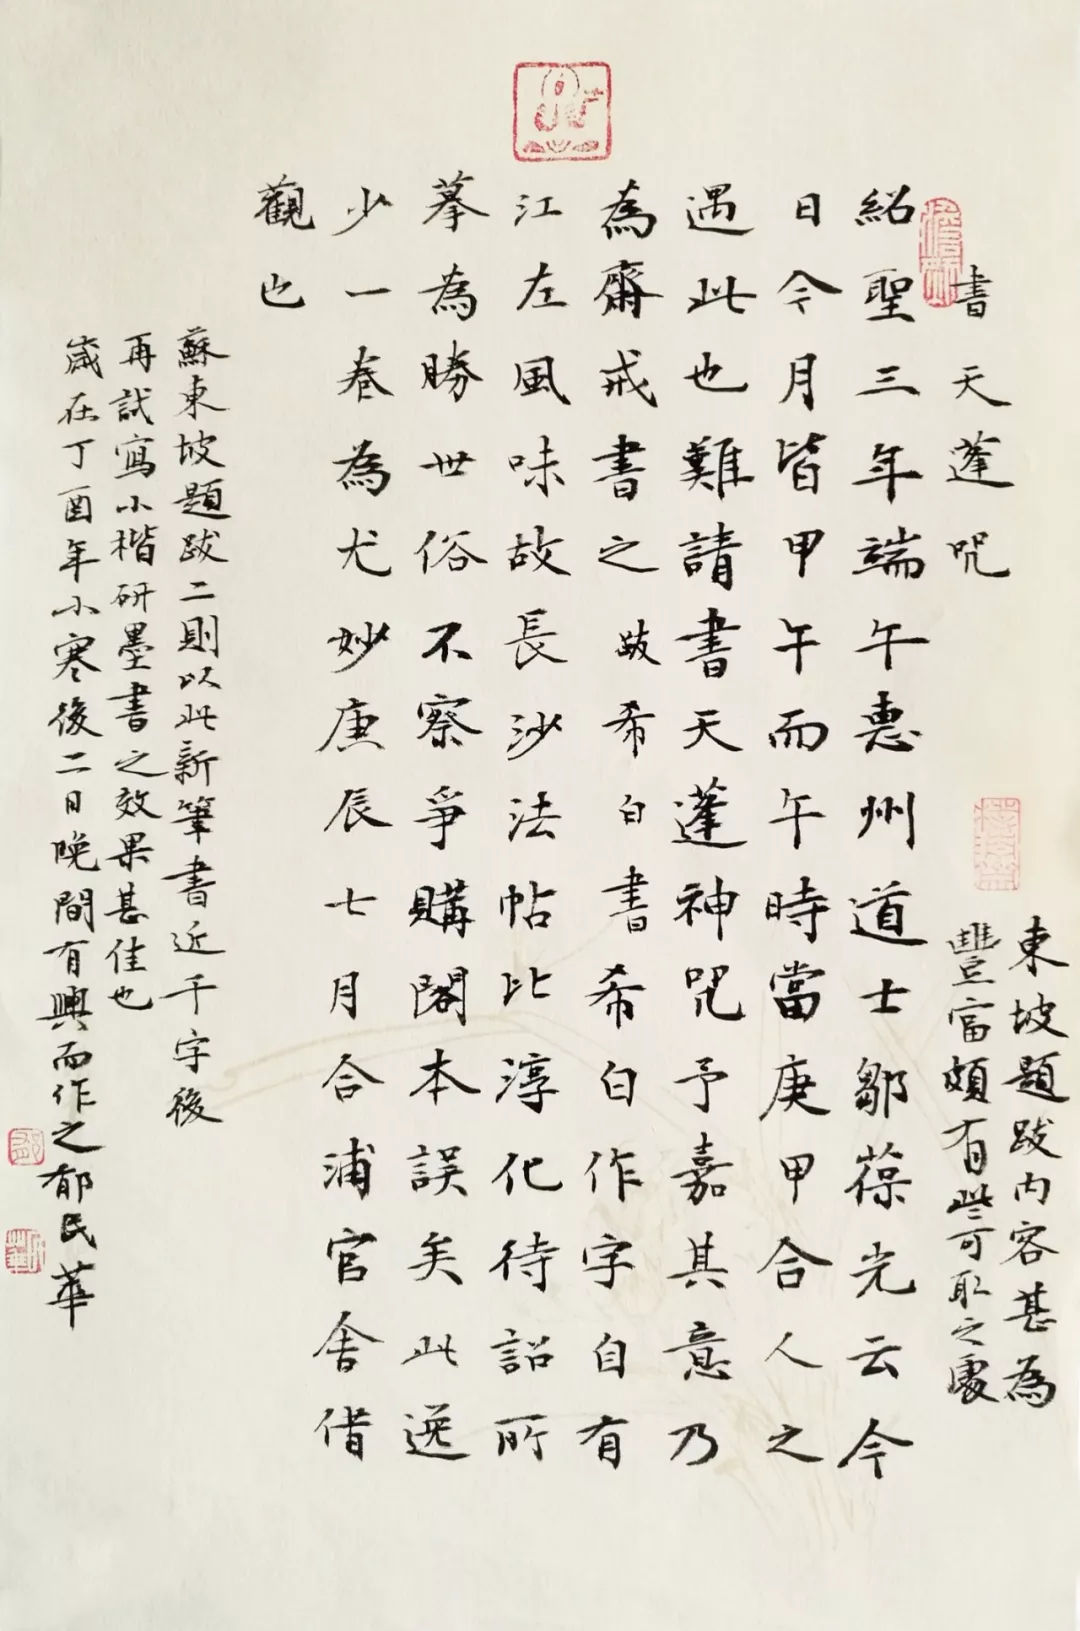 書天蓬咒
紹聖三年端午惠州道士鄒葆光云今
日今月皆甲午而午時當庚甲合人之
遇此也難請書天蓬神咒予嘉其意乃
為齋戒書之跋希白書希白作字自有
江左風味故長沙法帖比淳化待詔所
摹為勝世俗不察爭購閣本誤矣此逸
少一卷為尤妙庚辰七月合浦官舍借
觀也
蘇東坡題跋二則以此新筆書近千字後
再試寫小楷研墨書之效果甚佳也
歲在丁酉年小寒後二日晚間有興而作之郁民華
東坡題跋内容甚為
豐富頗有些可取之處